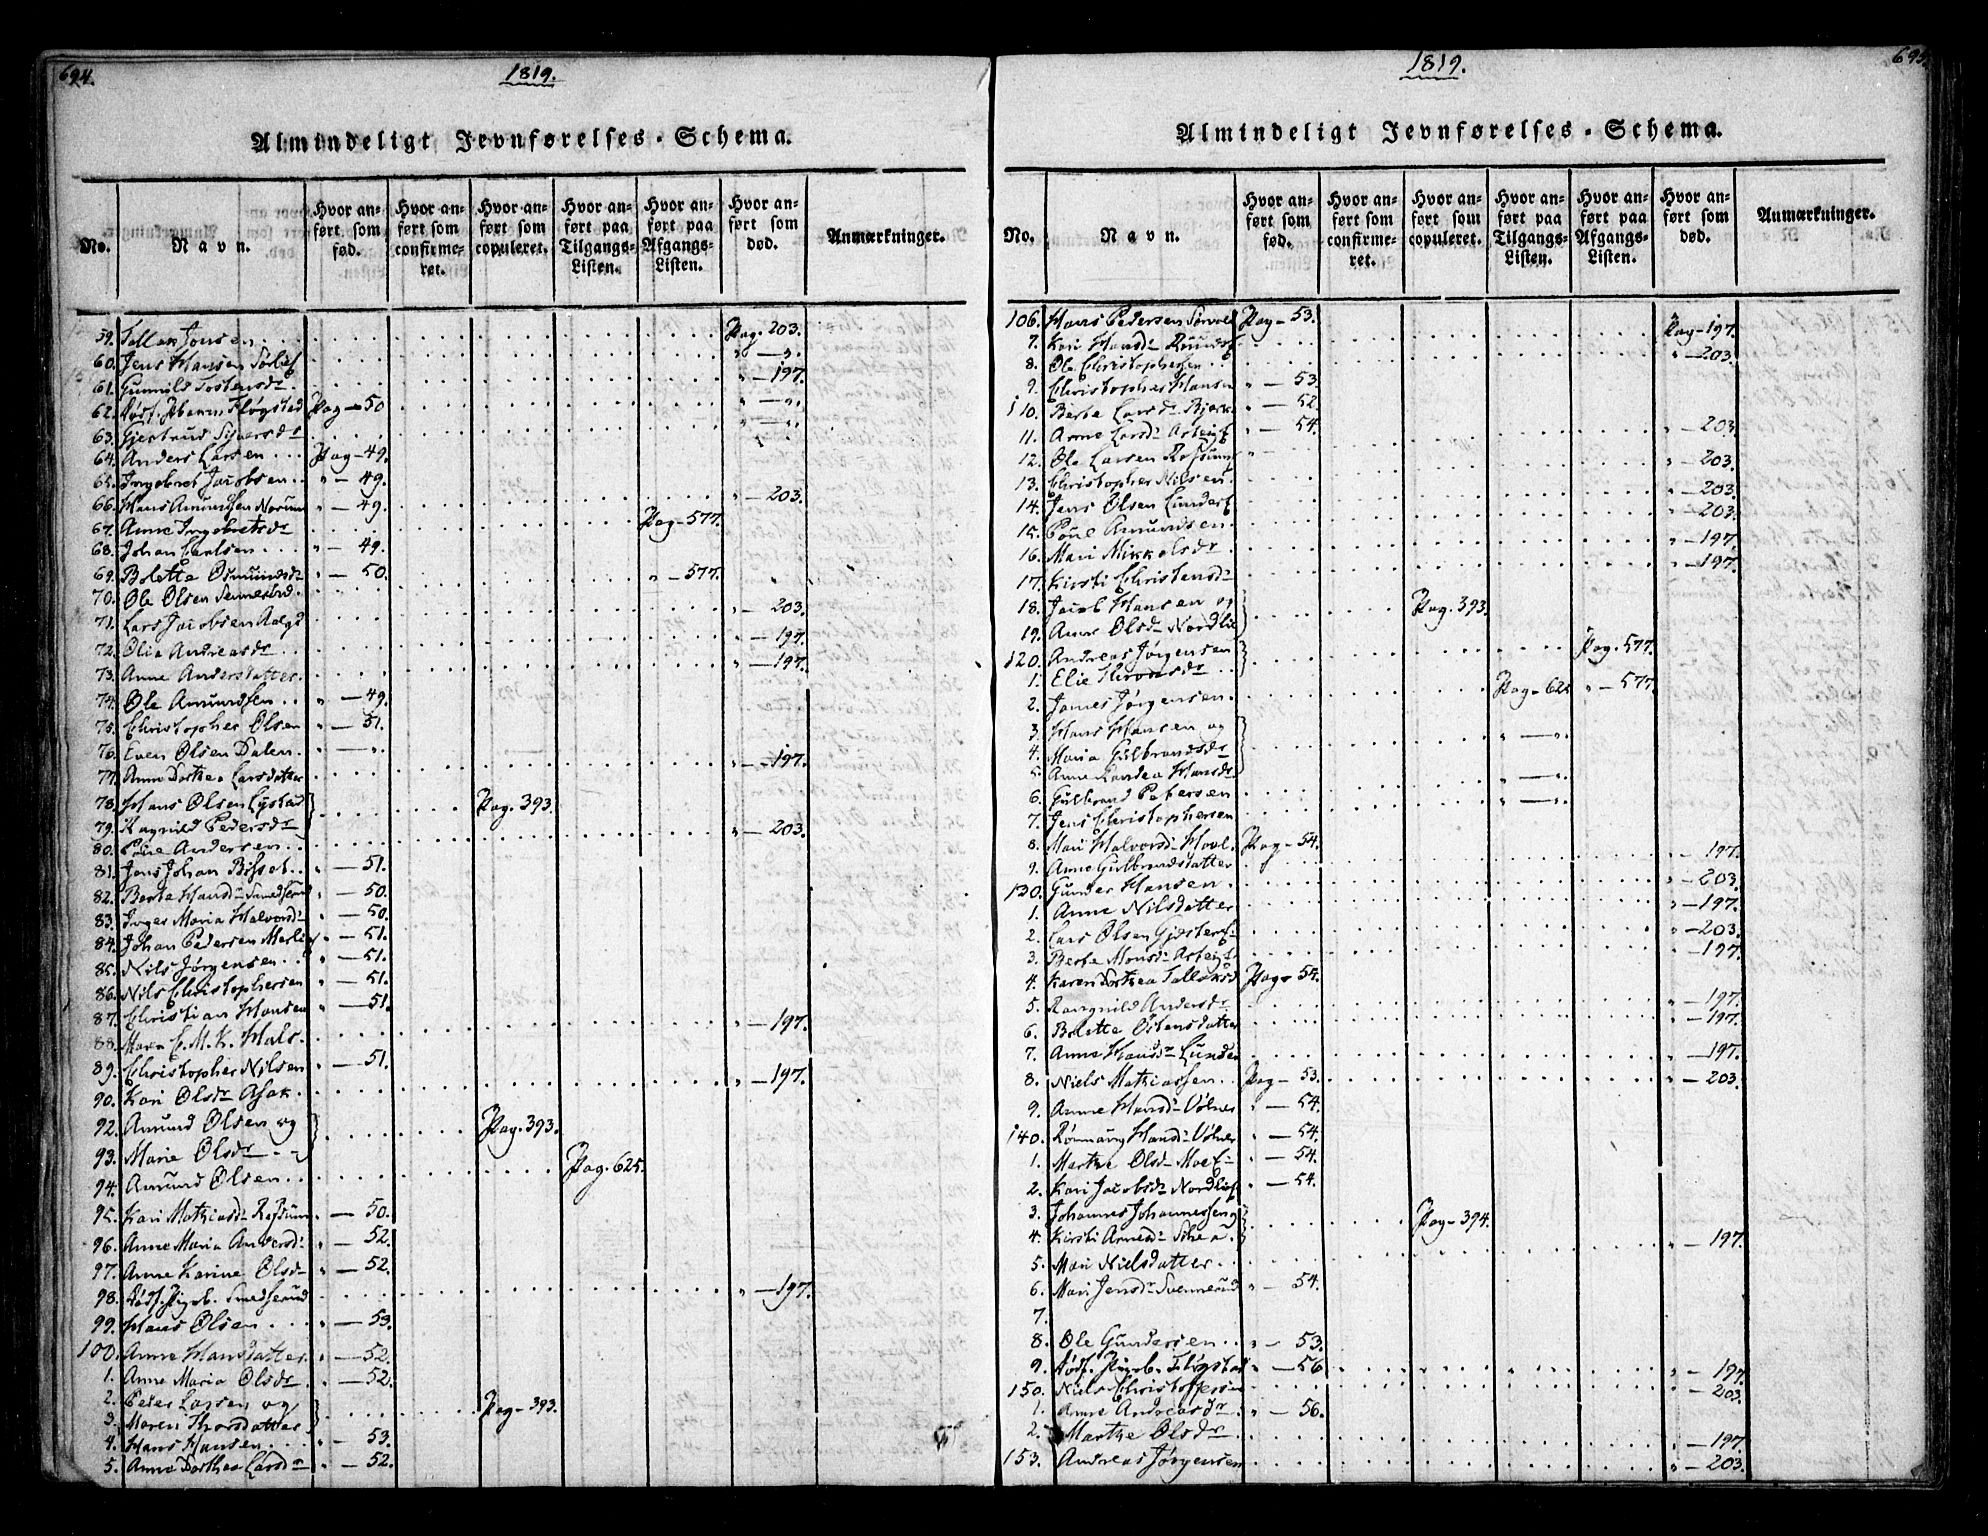 694. 1819.
Almindeligt Jevnførelses-Schema.
No. Navn. Hvor anført som fød. Hvor anført som confirmeret. Hvor anført som copuleret. Hvor anført paa Tilgangs-Listen. Hvor anført paa Afgangs-Listen. Hvor anført som død. Anmærkninger.
59. Tollak Jonsen Pag. 203.
60. Jens Hansen " — ".
61. Gunnild Tostensdr " — 197.
62. Flögstad Pag — 50 " — ".
63. Gjertrud Siversdr " — ".
64. Anders Larsen Pag — 49.
65. Ingebret Jacobsen " — 49.
66. Hans Amundsen " — 49. " — 203.
67. Anne Ingebretsdr Pag — 577.
68. Johan Carlsen " — 49.
69. Bolette Osmundsdr " — 50. " — 577.
70. Ole Olsen
71. Lars Jacobsen " — 203.
72. Olia Andreasdr " — 197.
73. Anne Andersdatter " — 197.
74. Ole Amundsen " — 49.
75. Christopher Olsen " — 51.
76. Even Olsen Dalen " — ".
77. Anne Dorthea Larsdatter " — 197.
78. Hans Olsen Lystad Pag. 393.
79. Ragnild Pedersdr
80. Andersen " — 203.
81. Jens Johan " — 51.
82. Berte Hansd " — 50.
83. Inger Maria Halvorsd " — 50.
84. Johan Pedersen " — 51.
85. Nils Jørgensen " — 51.
86. Nils Christophersen " — 51.
87. Christian Hansen " — 51.
88. Maria C. M. K. Hals. " — 197.
89. Christopher Nilsen " — 51.
90. Kari Olsdr Asak " — 197.
92. Amund Olsen og Pag. 393.
93. Marie Olsdr
94. Amund Olsen Pag. 625.
95. Kari Mathiasd " — 50.
96. Anne Maria Andersd " — 52.
97. Anne Karine Olsd " — 52.
98. Smedserud " — 197.
99. Hans Olsen " — 53.
100. Anne Hansdatter " — 52.
1. Anne Maria Olsdr " — 52.
2. Peder Larsen og Pag — 393.
3. Maren Thorsdatter
4. Hans Hansen " — 53.
5. Anne Dorthea Larsdr " — 52.
1819. 695
Almindeligt Jevnførelses-Schema.
No. Navn. Hvor anført som fød. Hvor anført som confirmeret. Hvor anført som copuleret. Hvor anført paa Tilgangs-Listen. Hvor anført paa Afgangs-Listen. Hvor anført som død. Anmærkninger.
106. Hans Pedersen Pag — 53. Pag — 197.
7. Kari Hansd " — 203.
8. Ole Christophersen
9. Christopher Hansen " — 53.
110. Berte Larsd " — 52.
11. Anne Larsd " — 54. " — 203.
12. Ole Larsen " — 203.
13. Christopher Nilsen " — 203.
14. Jens Olsen " — 203.
15. Amundsen " — 197.
16. Mari Mikkelsdr " — 197.
17. Kirsti Christensd
18. Jacob Hansen og Pag. 393.
19. Anne Olsd Nordlie
120. Andreas Jørgensen Pag. 577.
1. Elie
2. James Jørgensen Pag — 625 " — 577.
3. Hans Hansen og
4. Maria Gulbrandsdr " — ".
5. Anne Hansdr
6. Gulbrand Petersen " — ".
7. Jens Christophersen " — ".
8. Mari Halvorsd Pag — 54.
9. Anne Gulbrandsdatter " — 197.
130. Gunder Hansen " — 203.
1. Anne Nilsdatter " — 197.
2. Lars Olsen " — 203.
3. Berte Monsd " — 197.
4. Karen Dorthea Tollaksd Pag — 54.
5. Rangnild Andersdr " — 197.
6. Bolette Ostensdatter " — 197.
7. Anne Hansdr Lunder " — 197.
8. Niels Mathiassen Pag — 53. " — 203.
9. Anne Hansd Völner " — 54.
140. Hansd Völner " — 54.
1. Marthe Olsd " — 54.
2. Kari Jacobsd Nordlie " — 54.
3. Johannes Johannessen og Pag — 394.
4. Kirsti Arnesd " — 197.
5. Mari Nielsdatter
6. Mari Jensd " — 54.
7.
8. Ole Gundersen " — 53.
9. Flögstad " — 56 " — 197.
150. Niels Christoffersen " — 203.
1. Anne Andreasdr " — 56.
2. Marthe Olsdr " — 197.
153. Andreas Jørgensen " — 203.